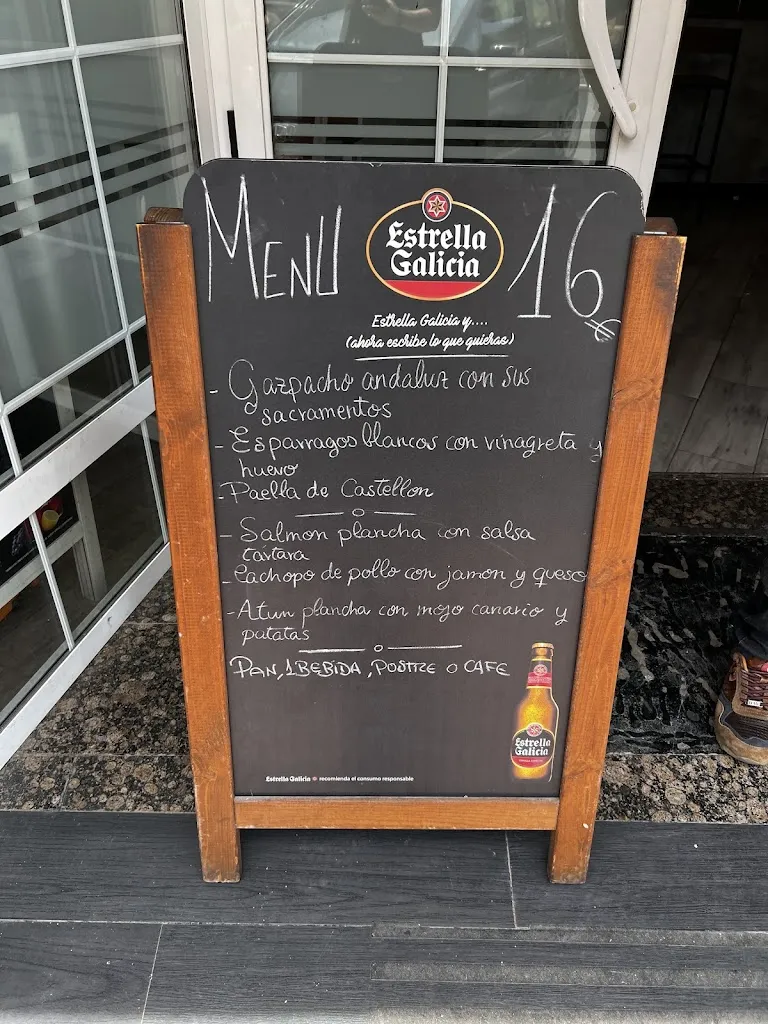 MENU
Estrella
Galicia
16€
Estrella Galicia y....
(ahora escribe lo que quieras)
- Gazpacho andaluz con sus
sacramentos
- Esparragos blancos con vinagreta y
huevo
- Paella de Castellon
- Salmon plancha con salsa
tartara
- Cachopo de pollo con jamon y queso
- Atun plancha con mojo canario y
patatas
PAN, 1 BEBIDA, POSTRE O CAFE
Estrella
Galicia
Estrella Galicia recomienda el consumo responsable